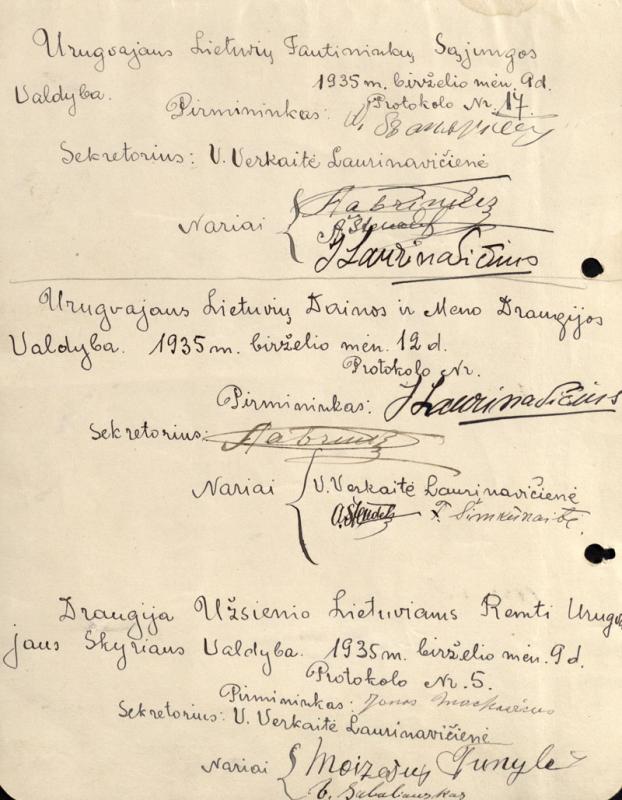 Urugvajaus Lietuvių Tautininkų Sąjungos
Valdyba. 1935 m. birželio mėn. 9 d.
Protokolo Nr. 17.
Pirmininkas:
Sekretorius: V. Verkaitė Laurinavičienė
Nariai
J Laurinavičius
Urugvajaus Lietuvių Dainos ir Meno Draugijos
Valdyba. 1935 m. birželio mėn. 12 d.
Protokolo Nr.
Pirmininkas: J Laurinavičius
Sekretorius:
Nariai V. Verkaitė Laurinavičienė
Draugija Užsienio Lietuviams Remti Urugv
jaus Skyriaus Valdyba. 1935 m. birželio mėn. 9 d.
Protokolo Nr. 5.
Pirmininkas: Jonas
Sekretorius: V. Verkaitė Laurinavičienė
Nariai